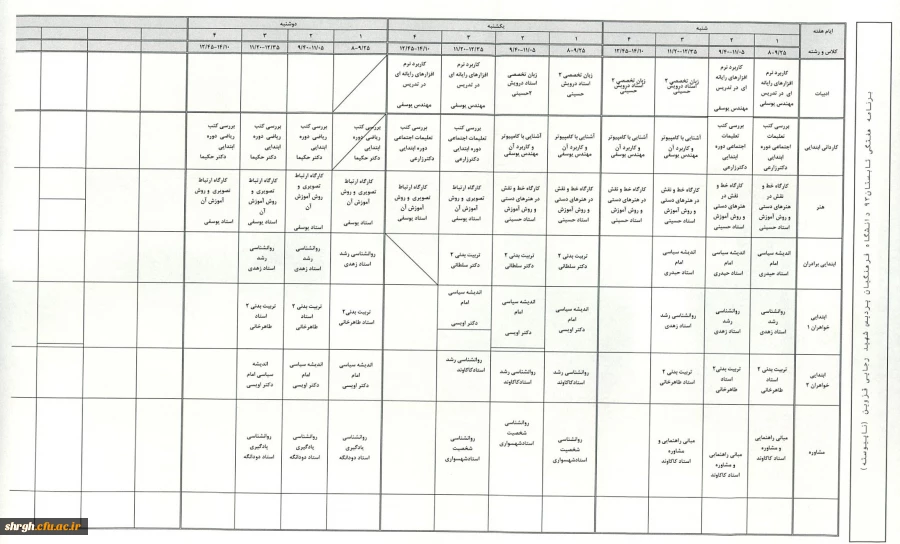 برنامه هفتگی تابستان ۹۳ دانشگاه فرهنگیان پردیس شهید رجایی قزوین (ناپیوسته)
ایام هفته شنبه یکشنبه دوشنبه
۱ ۲ ۳ ۴ ۱ ۲ ۳ ۴ ۱ ۲ ۳ ۴
کلاس و رشته ۸-۹/۲۵ ۹/۴۰-۱۱/۰۵ ۱۱/۲۰-۱۲/۴۵ ۱۲/۴۵-۱۴/۱۰ ۸-۹/۲۵ ۹/۴۰-۱۱/۰۵ ۱۱/۲۰-۱۲/۴۵ ۱۲/۴۵-۱۴/۱۰ ۸-۹/۲۵ ۹/۴۰-۱۱/۰۵ ۱۱/۲۰-۱۲/۴۵ ۱۲/۴۵-۱۴/۱۰
ادبیات
کاربرد نرم
افزارهای رایانه
ای در تدریس
مهندس یوسفی
کاربرد نرم
افزارهای رایانه
ای در تدریس
مهندس یوسفی
زبان تخصصی ۲
استاد درویش
حسینی
زبان تخصصی ۲
استاد درویش
حسینی
زبان تخصصی ۲
استاد درویش
حسینی
زبان تخصصی
استاد درویش
حسینی
کاربرد نرم
افزارهای رایانه ای
در تدریس
مهندس یوسفی
کاربرد نرم
افزارهای رایانه ای
در تدریس
مهندس یوسفی
کاردانی ابتدایی
بررسی کتب
تعلیمات
اجتماعی دوره
ابتدایی
دکترزارعی
بررسی کتب
تعلیمات
اجتماعی دوره
ابتدایی
دکترزارعی
آشنایی با کامپیوتر
و کاربرد آن
مهندس یوسفی
آشنایی با کامپیوتر
و کاربرد آن
مهندس یوسفی
آشنایی با کامپیوتر
و کاربرد آن
مهندس یوسفی
آشنایی با کامپیوتر
و کاربرد آن
مهندس یوسفی
بررسی کتب
تعلیمات اجتماعی
دوره ابتدایی
دکترزارعی
بررسی کتب
تعلیمات اجتماعی
دوره ابتدایی
دکترزارعی
بررسی کتب
ریاضی دوره
ابتدایی
دکتر حکیما
بررسی کتب
ریاضی دوره
ابتدایی
دکتر حکیما
بررسی کتب
ریاضی دوره
ابتدایی
دکتر حکیما
بررسی کتب
ریاضی دوره
ابتدایی
دکتر حکیما
هنر
کارگاه خط و
نقش در
هنرهای دستی
و روش آموزش
استاد حسینی
کارگاه خط و
نقش در
هنرهای دستی
و روش آموزش
استاد حسینی
کارگاه خط و نقش
در هنرهای دستی
و روش آموزش
استاد حسینی
کارگاه خط و نقش
در هنرهای دستی
و روش آموزش
استاد حسینی
کارگاه خط و نقش
در هنرهای دستی
و روش آموزش
استاد حسینی
کارگاه خط و نقش
در هنرهای دستی
و روش آموزش
استاد حسینی
کارگاه ارتباط
تصویری و روش
آموزش آن
استاد یوسفی
کارگاه ارتباط
تصویری و روش
آموزش آن
استاد یوسفی
کارگاه ارتباط
تصویری و روش
آموزش آن
استاد یوسفی
کارگاه ارتباط
تصویری و
روش آموزش
آن
استاد یوسفی
کارگاه ارتباط
تصویری و
روش آموزش
آن
استاد یوسفی
کارگاه ارتباط
تصویری و روش
آموزش آن
استاد یوسفی
ابتدایی برادران
اندیشه سیاسی
امام
استاد حیدری
اندیشه سیاسی
امام
استاد حیدری
اندیشه سیاسی
امام
استاد حیدری
تربیت بدنی ۲
دکتر سلطانی
تربیت بدنی ۲
دکتر سلطانی
تربیت بدنی ۲
دکتر سلطانی
روانشناسی رشد
استاد زهدی
روانشناسی
رشد
استاد زهدی
روانشناسی
رشد
استاد زهدی
ابتدایی
خواهران ۱
روانشناسی
رشد
استاد زهدی
روانشناسی
رشد
استاد زهدی
روانشناسی رشد
استاد زهدی
اندیشه سیاسی
امام
دکتر اویسی
اندیشه سیاسی
امام
دکتر اویسی
اندیشه سیاسی
امام
دکتر اویسی
تربیت بدنی ۲
استاد طاهرخانی
تربیت بدنی ۲
استاد
طاهرخانی
تربیت بدنی ۲
استاد
طاهرخانی
ابتدایی
خواهران ۲
تربیت بدنی ۲
استاد
طاهرخانی
تربیت بدنی ۲
استاد
طاهرخانی
تربیت بدنی ۲
استاد طاهرخانی
روانشناسی رشد
استادکاکاوند
روانشناسی رشد
استادکاکاوند
روانشناسی رشد
استادکاکاوند
اندیشه سیاسی
امام
دکتر اویسی
اندیشه سیاسی
امام
دکتر اویسی
اندیشه
سیاسی امام
دکتر اویسی
مشاوره
مبانی راهنمایی
و مشاوره
استاد کاکاوند
مبانی راهنمایی
و مشاوره
استاد کاکاوند
مبانی راهنمایی و
مشاوره
استاد کاکاوند
روانشناسی
شخصیت
استادشهسواری
روانشناسی
شخصیت
استادشهسواری
روانشناسی
شخصیت
استادشهسواری
روانشناسی
یادگیری
استاد دودانگه
روانشناسی
یادگیری
استاد دودانگه
روانشناسی
یادگیری
استاد دودانگه
shrgh.cfu.ac.ir